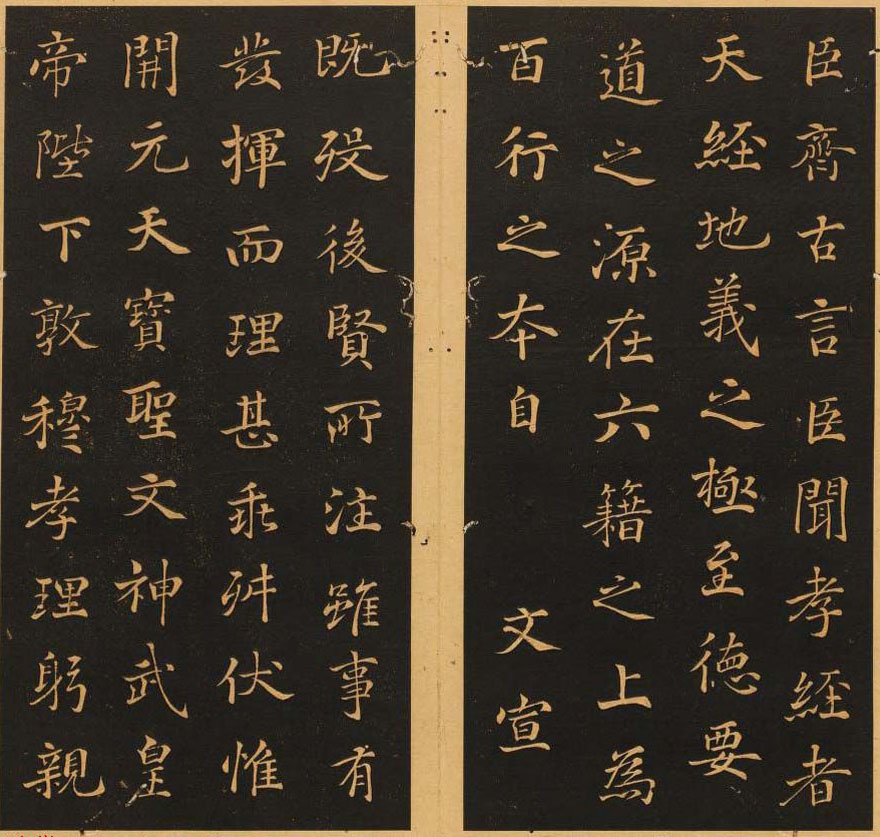 臣齊古言臣聞孝經者
天經地義之極至德要
道之源在六籍之上為
百行之本自 文宣
既歿後賢所注雖事有
發揮而理甚乖舛伏惟
開元天寶聖文神武皇
帝陛下敦穆孝理躬親